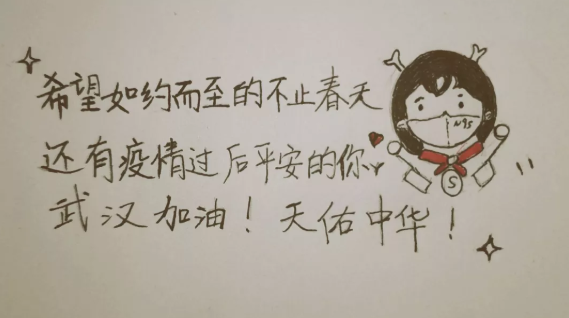 希望如约而至的不止春天
还有疫情过后平安的你
武汉加油！天佑中华！
N95
S